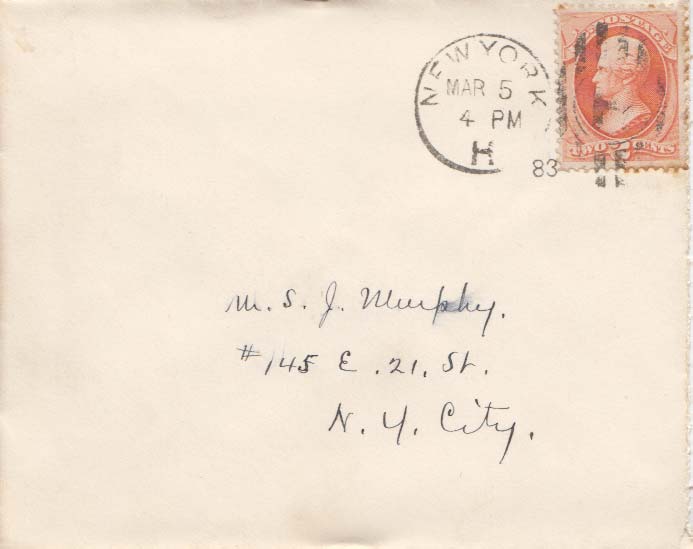 NEW YORK
MAR 5
4 PM
H
83
U.S. POSTAGE
TWO CENTS
M. S. J. Murphy.
#145 E. 21. St.
N. Y. City.